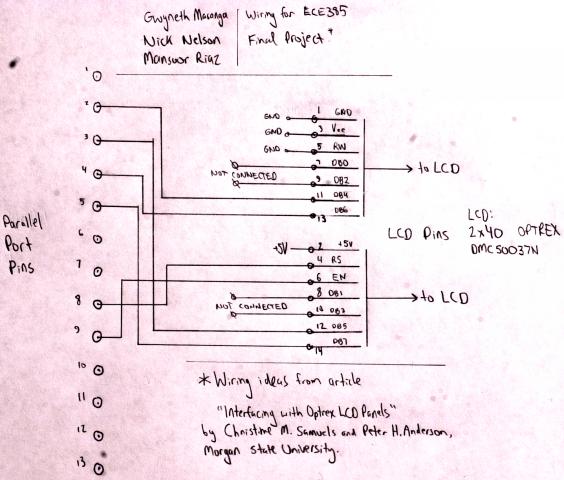 Gwyneth Macanga
Nick Nelson
Mansoor Riaz
Wiring for ECE395
Final Project *
1
2
3
4
5
6
7
8
9
10
11
12
13
Parallel
Port
Pins
GND 1 GND
GND 3 Vee
GND 5 RW
7 DB0
NOT CONNECTED
9 DB2
11 DB4
13 DB6
to LCD
+5V 2 +5V
4 RS
6 EN
8 DB1
NOT CONNECTED
10 DB3
12 DB5
14 DB7
to LCD
LCD Pins
LCD:
2x40 OPTREX
DMC50037N
* Wiring ideas from article
"Interfacing with Optrex LCD Panels"
by Christine M. Samuels and Peter H. Anderson,
Morgan State University.